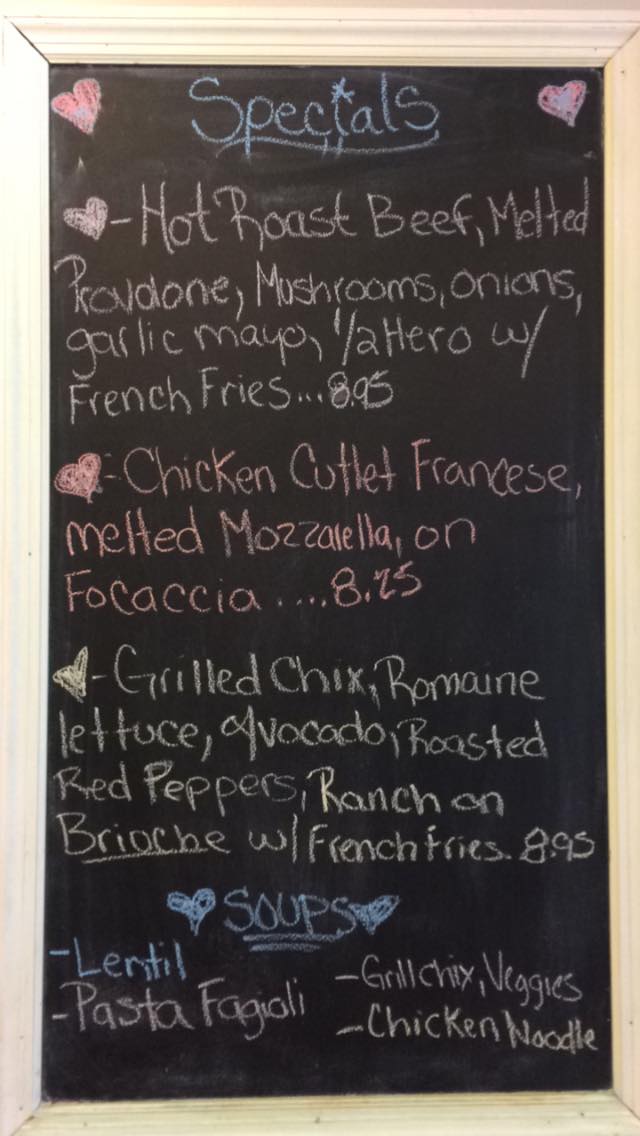 Specials
- Hot Roast Beef, Melted
Provolone, Mushrooms, onions,
garlic mayo, 1/2 Hero w/
French Fries... 8.95
- Chicken Cutlet Francese,
melted Mozzarella, on
Focaccia ....8.75
- Grilled Chix, Romaine
lettuce, Avocado, Roasted
Red Peppers, Ranch on
Brioche w/ French fries. 8.95
SOUPS
- Lentil
- Pasta Fagioli
- Grill chix, Veggies
- Chicken Noodle